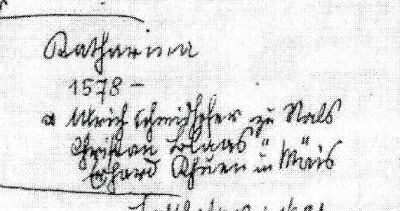 Katharina
1578 –
a Ulrich Schmidhofer zu Nals
Christian Blaas "
Erhard Khuen in Mais